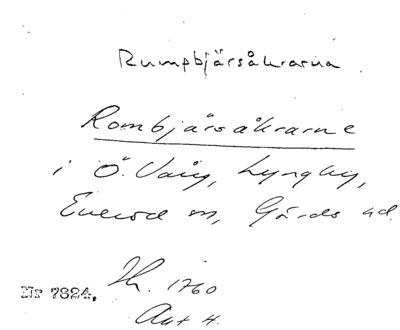 Rumpbjärsåkrarna
Rombjärsåkrarne
i Ö. Vång, Lyngby,
Everöd m, Gärds hd.
Nr 7324. 1760
Akt 4.